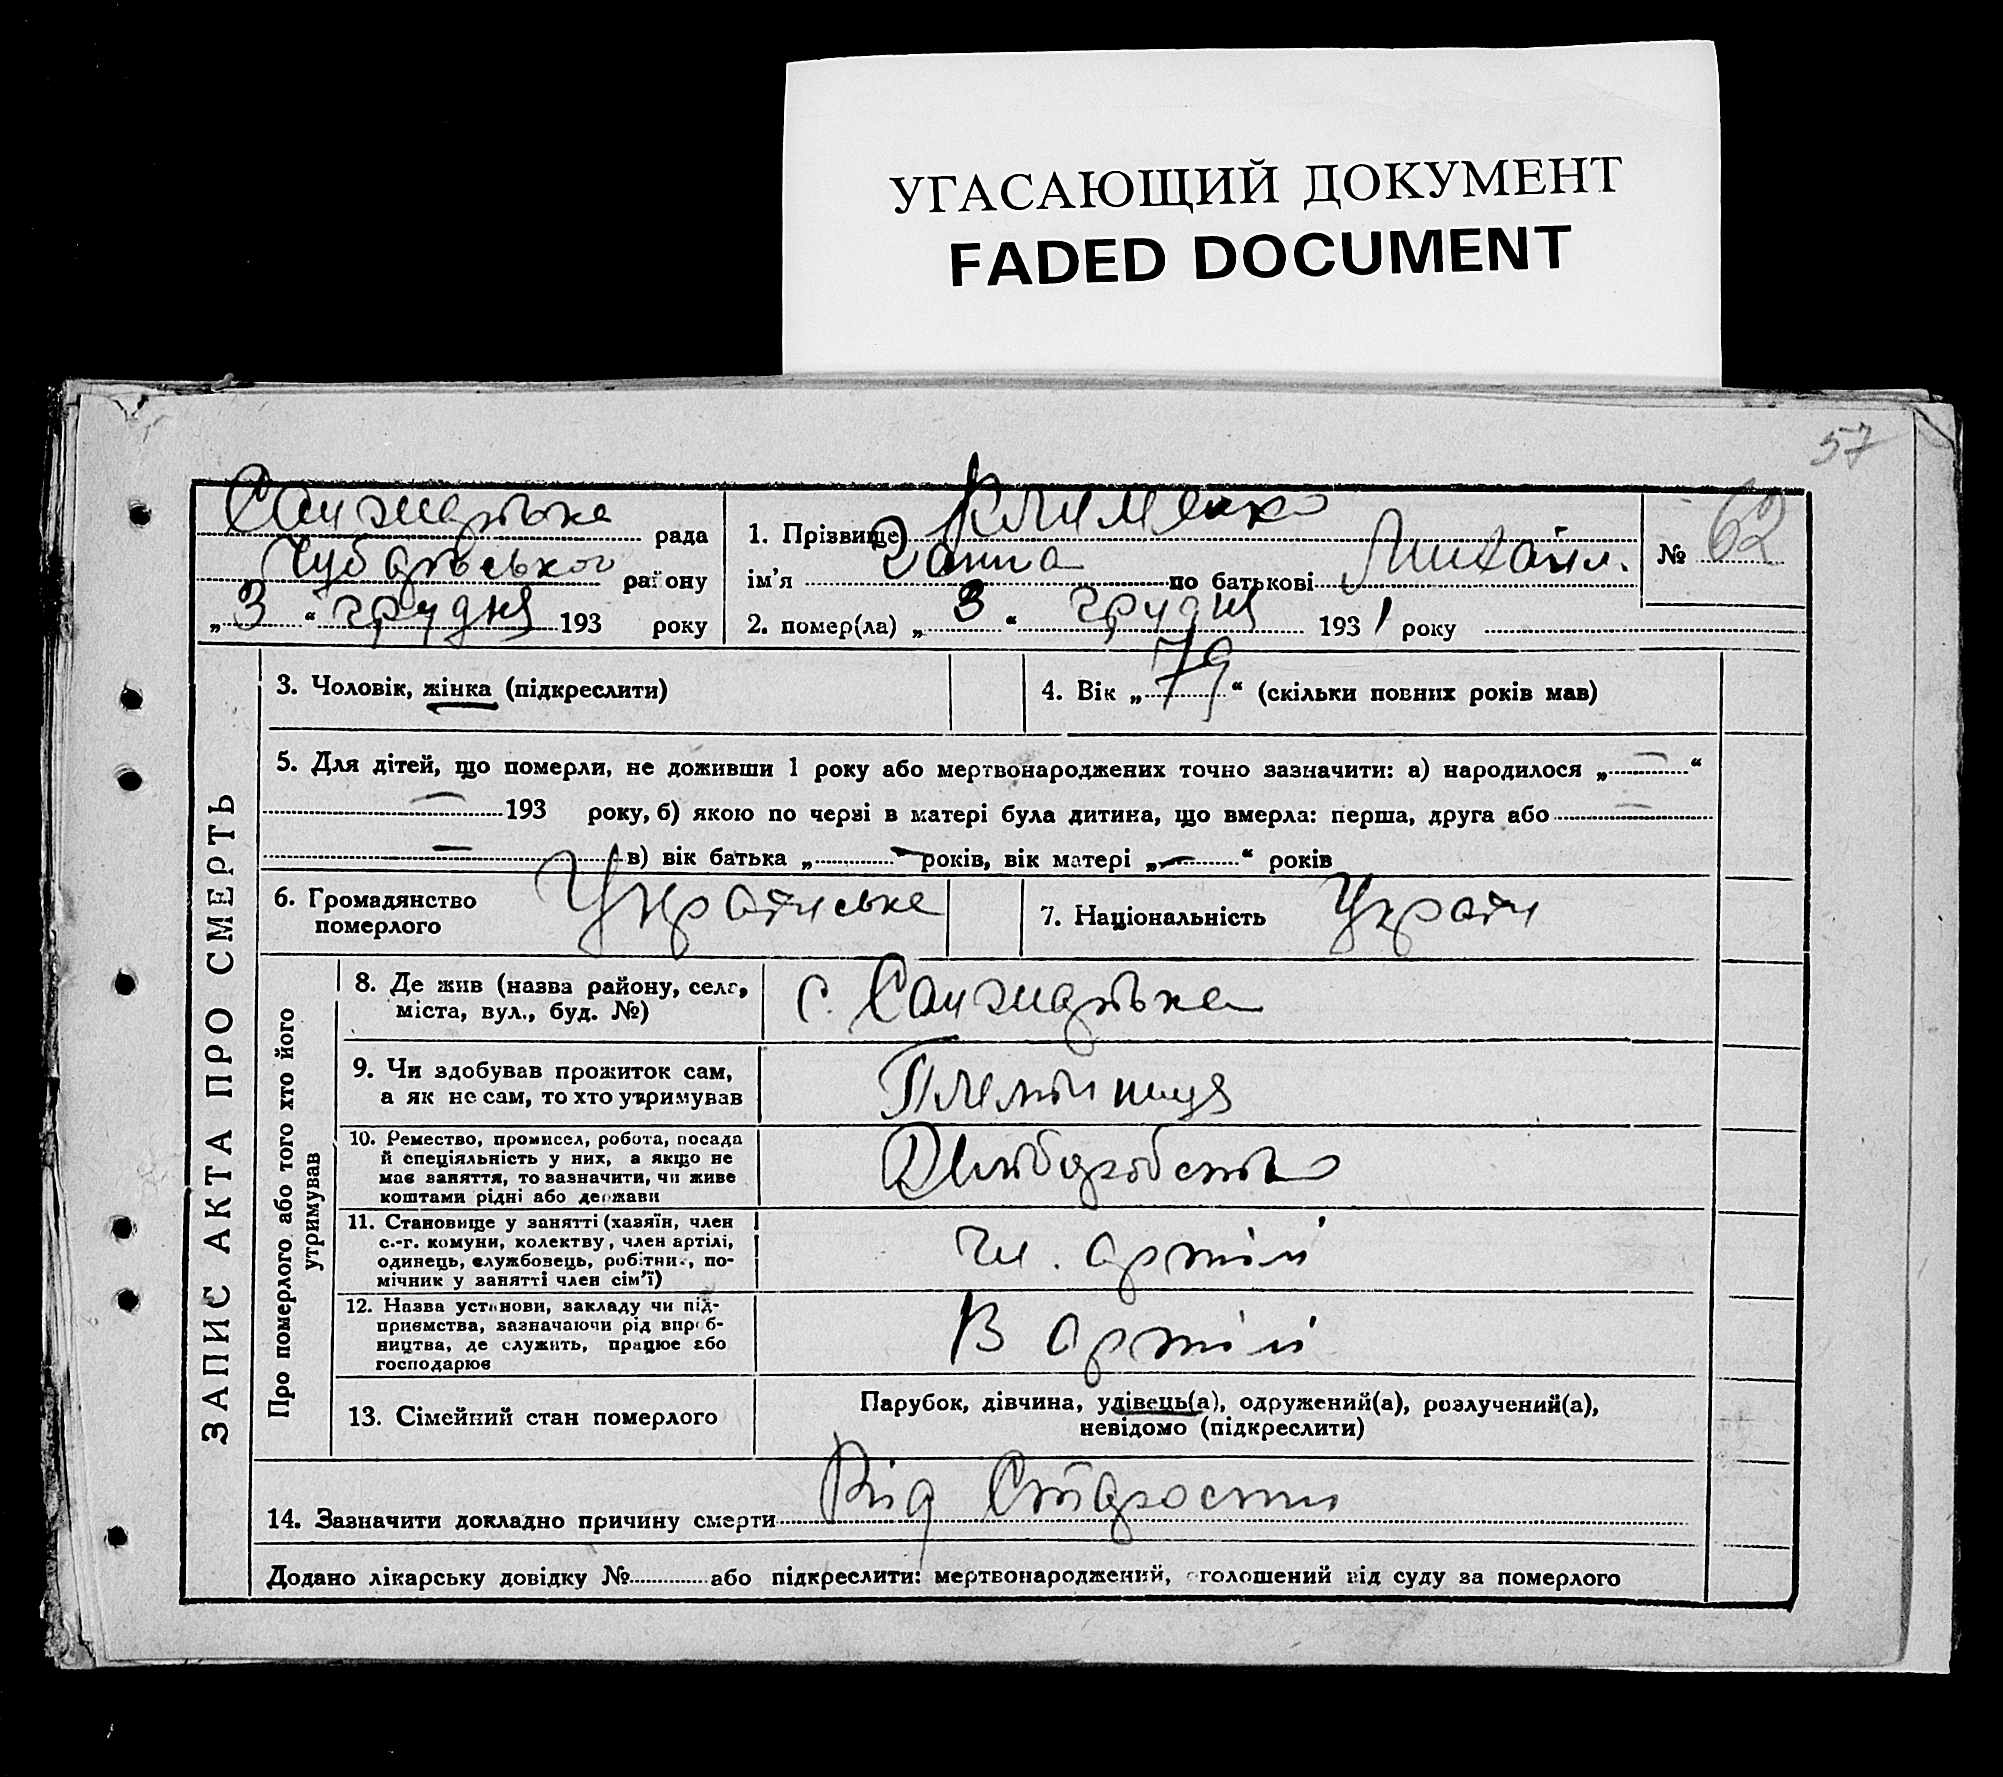 УГАСАЮЩИЙ ДОКУМЕНТ
FADED DOCUMENT
57
Санжарівка рада
Чубарівського району
„3“ грудня 193 року
1. Прізвище Клименко
ім’я Ганна по батькові Михайл.
2. помер(ла) „3“ грудня 1931 року
№ 62
ЗАПИС АКТА ПРО СМЕРТЬ
3. Чоловік, жінка (підкреслити)
4. Вік „79“ (скільки повних років мав)
5. Для дітей, що померли, не доживши 1 року або мертвонароджених точно зазначити: а) народилося „—“
— 193 року, б) якою по черзі в матері була дитина, що вмерла: перша, друга або —
— в) вік батька „—“ років, вік матері „—“ років
6. Громадянство
померлого
7. Національність Украін
Про померлого або того хто його
утримував
8. Де жив (назва району, села,
міста, вул., буд. №)
с. Санжарівка
9. Чи здобував прожиток сам,
а як не сам, то хто утримував
10. Ремество, промисел, робота, посада
й спеціяльність у них, а якщо не
має заняття, то зазначити, чи живе
коштами рідні або держави
Хліборобство
11. Становище у занятті (хазяїн, член
с.-г. комуни, колектву, член артілі,
одинець, службовець, робітник, по-
мічник у занятті член сім’ї)
чл. артілі
12. Назва установи, закладу чи під-
приємства, зазначаючи рід вироб-
ництва, де служить, працює або
господарює
В артілі
13. Сімейний стан померлого
Парубок, дівчина, удівець(а), одружений(а), розлучений(а),
невідомо (підкреслити)
14. Зазначити докладно причину смерти Від старости
Додано лікарську довідку № або підкреслити: мертвонароджений, оголошений від суду за померлого